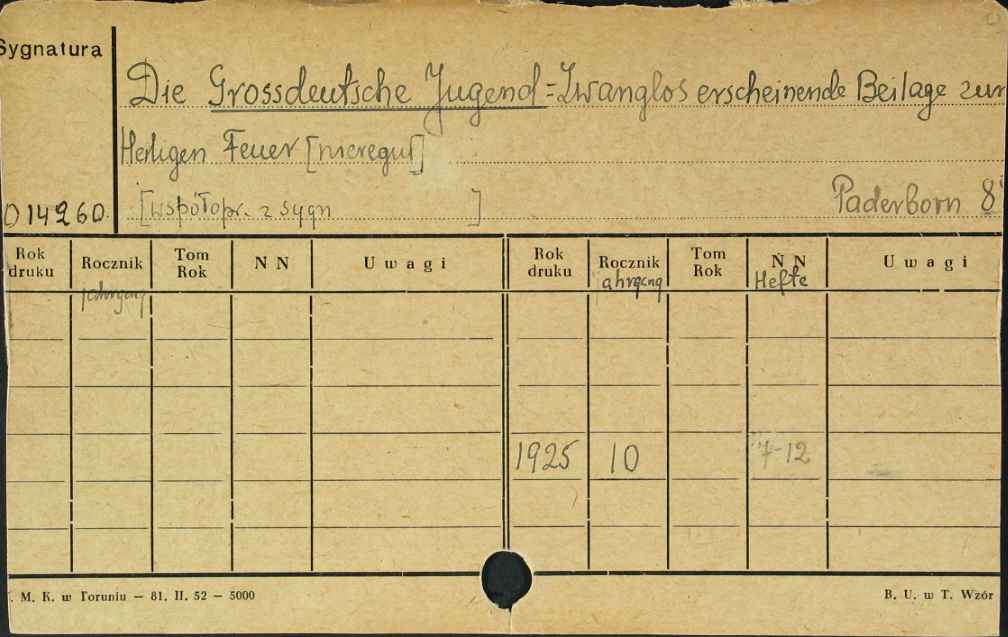 Sygnatura
Die Grossdeutsche Jugend=Zwanglos erscheinende Beilage zur
Heiligen Feuer [nieregul]
014260 [współopr. z sygn ] Paderborn 8°
Rok druku Rocznik Tom Rok N N Uwagi Rok druku Rocznik Tom Rok N N Uwagi
jahrgang jahrgang Hefte
1925 10 7-12
M. K. w Toruniu — 81. II. 52 — 5000 B. U. w T. Wzór